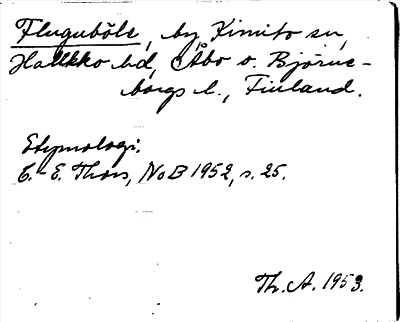 Fluguböle, by, Kimito sn,
Halikko hd, Åbo o. Björne-
borgs l., Finland.
Etymologi.
C.-E. Thors, NoB 1952, s. 25.
Th. A. 1953.